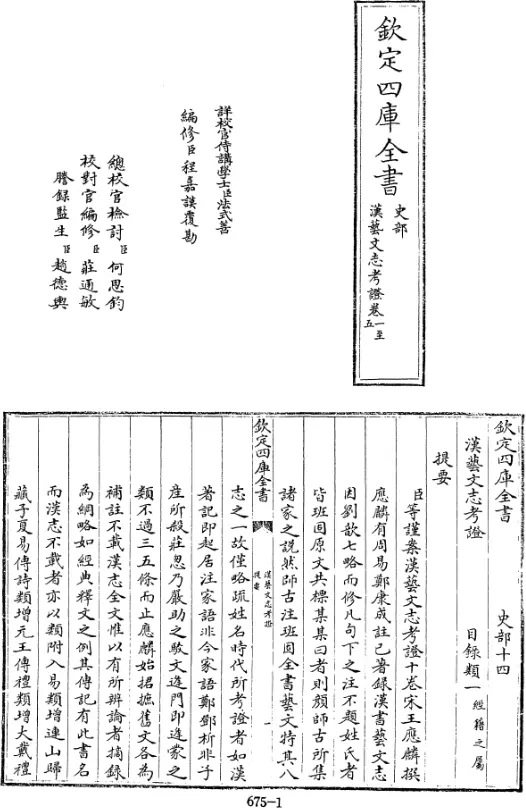 欽定四庫全書
史部
漢藝文志考證卷一至五
詳校官侍講學士臣法式善
編修臣程嘉謨覆勘
總校官檢討臣何思鈞
校對官編修臣莊通敏
謄錄監生臣趙德輿
欽定四庫全書 史部十四
漢藝文志考證 目録類一 經籍之屬
提要
臣等謹案漢藝文志考證十卷宋王應麟撰
應麟有周易鄭康成註已著録漢書藝文志
因劉歆七略而修凡句下之注不題姓氏者
皆班固原文其標某某曰者則顏師古所集
諸家之説然師古注班固全書藝文特其八
欽定四庫全書 漢藝文志考證 提要 一
志之一故僅略疏姓名時代所考證者如漢
著記即起居注家語非今家語鄭鄧析非子
産所殺莊怱乃嚴助之駮文逢門即逢蒙之
類不過三五條而止應麟始捃摭舊文各為
補註不載漢志全文惟以有所辨論者摘録
為綱略如經典釋文之例其傳記有此書名
而漢志不載者亦以類附入易類增連山歸
藏子夏易傳詩類增元王傳禮類增大戴禮
675-1